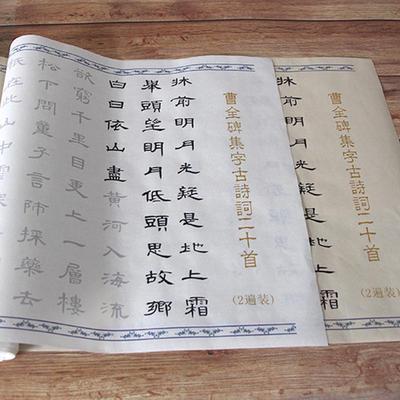 曹全碑集字古詩詞二十首
(2遍装)
牀前明月光疑是地上霜
曹全碑集字古詩詞二十首
(2遍装)
牀前明月光疑是地上霜
舉頭望明月低頭思故鄉
白日依山盡黃河入海流
欲窮千里目更上一層樓
松下問童子言師採藥去
在此山中雲